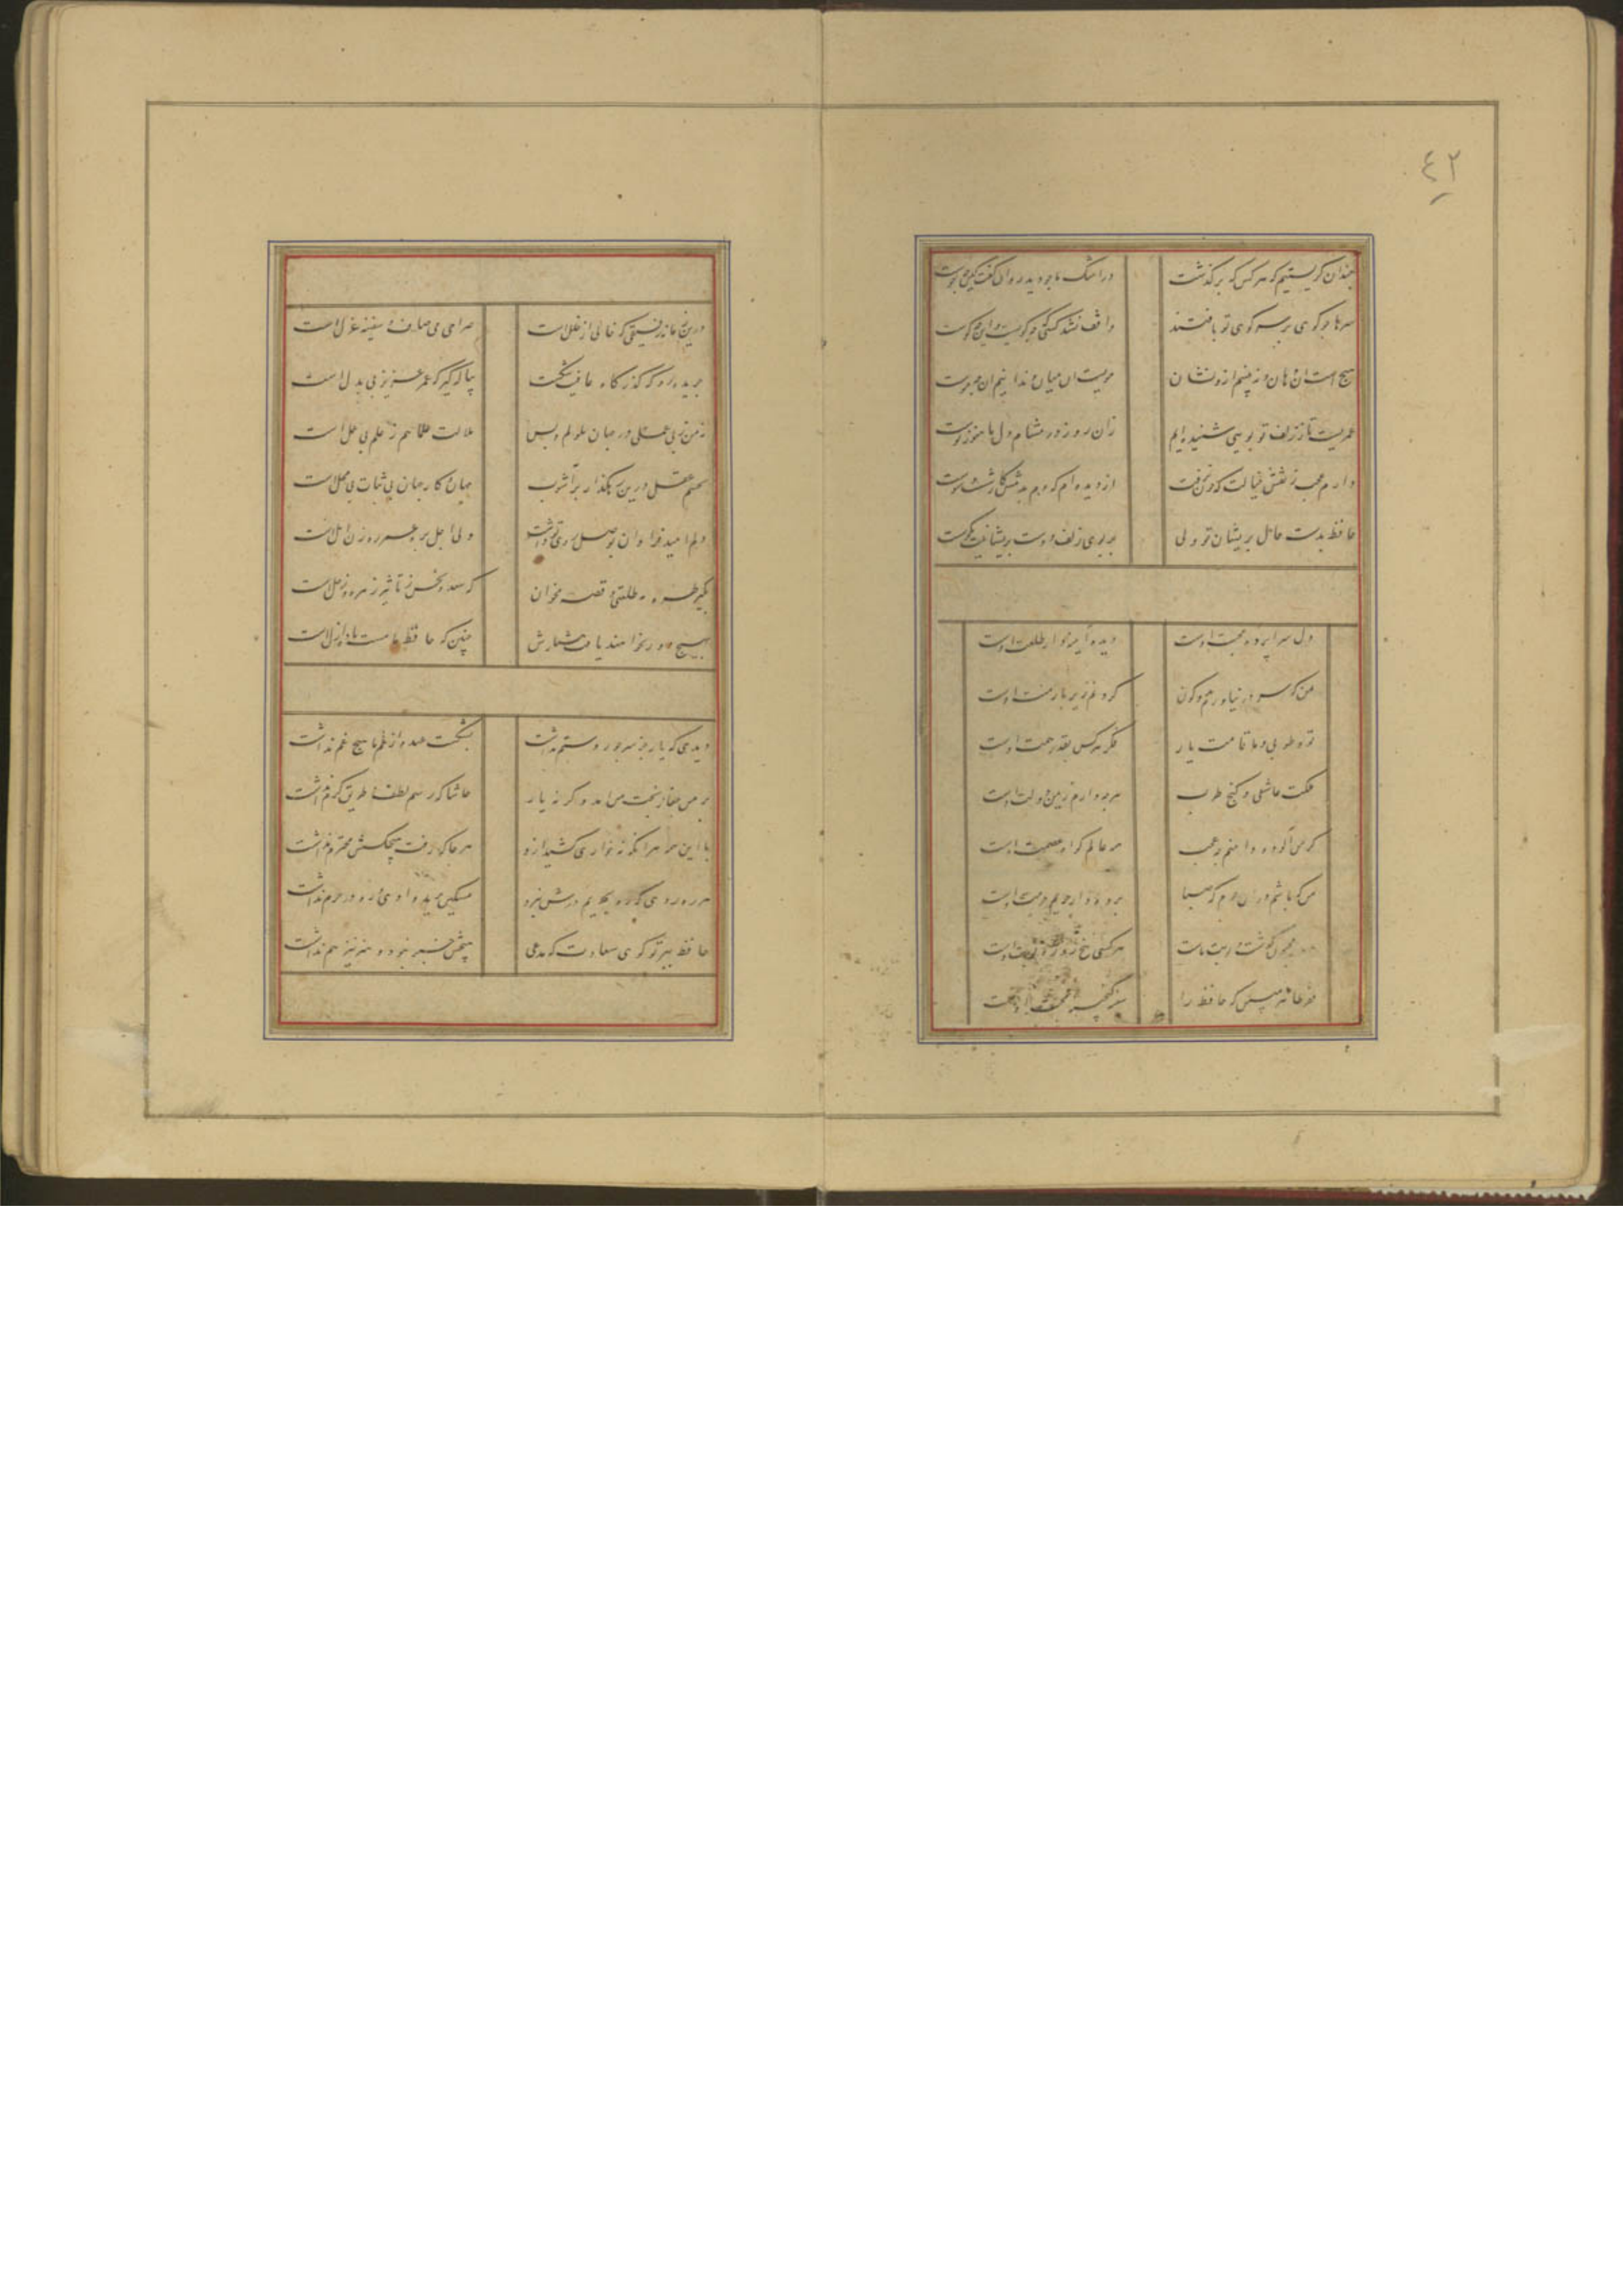 ٤٢
چندان گریستیم که هر کس که برگذشت
در اشک ما چو دید روان گفت کین چه جوست
سرها چو گوی بر سر کوی تو باختند
واقف نشد کسی که چه گویست و این چه کوست
هیچ است آن دهان و نبینم ازو نشان
مویست آن میان و ندانم که آن چه موست
عمریست تا ز زلف تو بویی شنیده ایم
زان روز در مشام دل ما هنوز بوست
دارم عجب ز نقش خیالت که چون نرفت
از دیده ام که دم بدمش کار شست و شوست
حافظ بدست حال پریشان تو ولی
بر بوی زلف دوست پریشانیت نکوست
دل سراپرده محبت اوست
دیده آیینه دار طلعت اوست
من که سر در نیاورم بدو کون
گردنم زیر بار منت اوست
تو و طوبی و ما و قامت یار
فکر هر کس بقدر همت اوست
ملکت عاشقی و گنج طرب
هر چه دارم ز یمن دولت اوست
گر من آلوده دامنم چه عجب
همه عالم گواه عصمت اوست
من که باشم در آن حرم که صبا
پرده دار حریم حرمت اوست
مجنون گذشت و نوبت ماست
هر کسی پنج روزه نوبت اوست
فقر ظاهر مبین که حافظ را
سینه گنجینه محبت اوست
درین زمانه رفیقی که خالی از خللست
صراحی می صاف و سفینه غزل است
جریده رو که گذرگاه عافیت تنگست
پیاله گیر که عمر عزیز بی بدل است
نه من ز بی عملی در جهان ملولم و بس
ملالت علما هم ز علم بی عمل است
بچشم عقل درین رهگذار پر آشوب
جهان و کار جهان بی ثبات و بی محلست
دلم امید فراوان بوصل روی تو داشت
ولی اجل بره عمر رهزن املست
بگیر طره مه طلعتی و قصه مخوان
که سعد و نحس ز تاثیر زهره و زحلست
بهیچ دور نخواهند یافت هشیارش
چنین که حافظ ما مست باده ازلست
دیدی که یار جز سر جور و ستم نداشت
بشکست عهد و از غم ما هیچ غم نداشت
بر من جفا ز بخت من آمد وگر نه یار
حاشا که رسم لطف و طریق کرم نداشت
با این همه هر آنکه نه خواری کشید ازو
هر جا که رفت هیچکسش محترم نداشت
هر راهرو که ره بحریم درش نبرد
مسکین برید وادی و ره در حرم نداشت
حافظ ببر تو گوی سعادت که مدعی
هیچش خبر نبود و هنر نیز هم نداشت